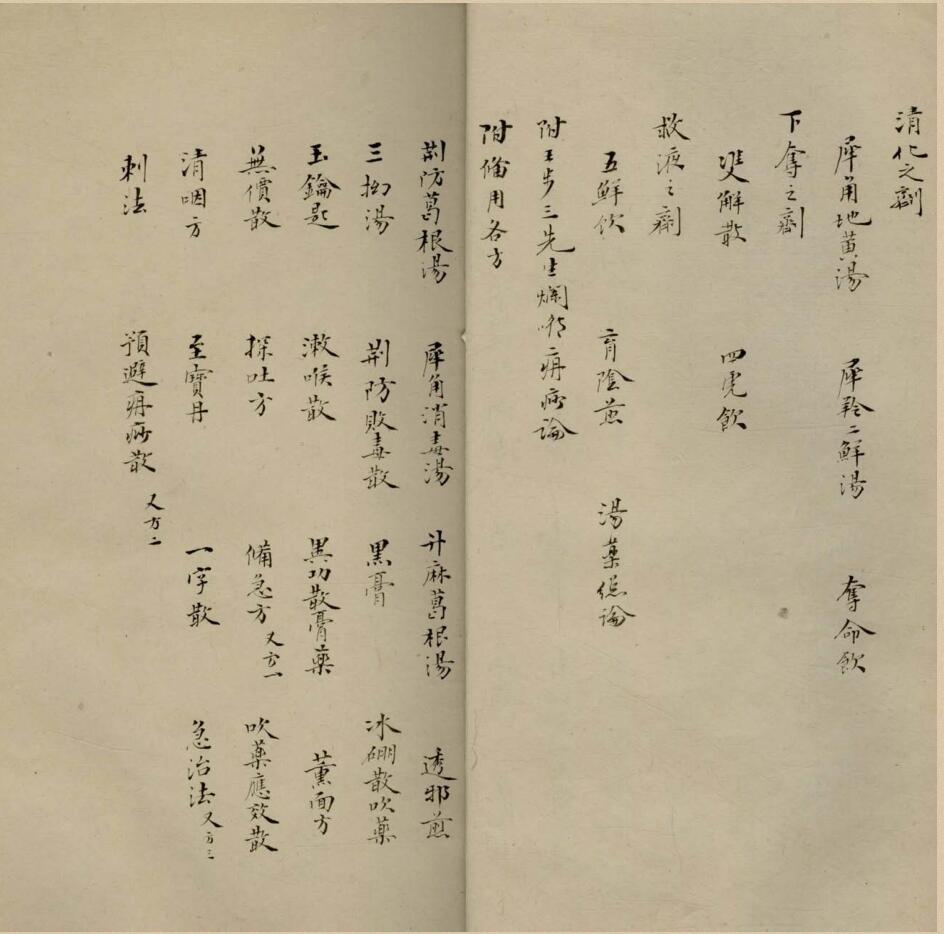 清化之劑
犀角地黃湯 犀羚二鮮湯 奪命飲
下奪之劑
雙解散 四虎飲
救液之劑
五鮮飲 育陰煎 湯藥總論
附王步三先生爛喉痧論
附備用各方
荊防葛根湯 犀角消毒湯 升麻葛根湯 透邪煎
三拗湯 荊防敗毒散 黑膏 冰硼散吹藥
玉鑰匙 漱喉散 異功散膏藥 薰面方
無價散 探吐方 備急方 又方一 吹藥應效散
清咽方 至寶丹 一字散 急治法 又方三
刺法 預避痧散 又方二